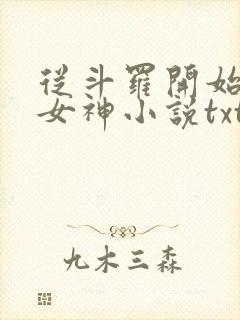 從斗羅開始
女神小說txt
九木三森